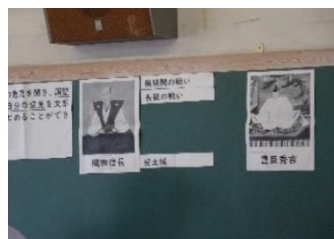 の意志を聞き、調整
自分の役割を文が
とめることができ
織田信長
桶狭間の戦い
長篠の戦い
安土城
豊臣秀吉